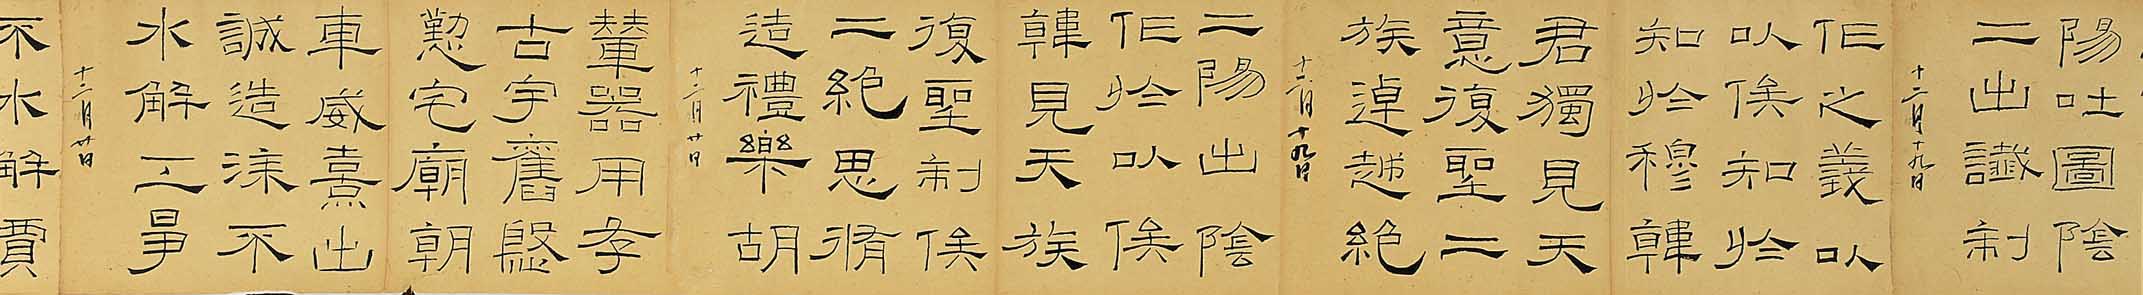 陽吐圖陰
二出讖制
十二月十九日
作之義以
以俟知於
知於穆韓
君獨見天
意復聖二
族逴越絕
十二月十九日
二陽出陰
作於以俟
韓見天族
復聖制俟
二絕思脩
造禮樂胡
十二月廿日
輦器用存
古宇舊殷
懃宅廟朝
車威熹出
誠造漆不
水解工爭
十二月廿日
不水解賈